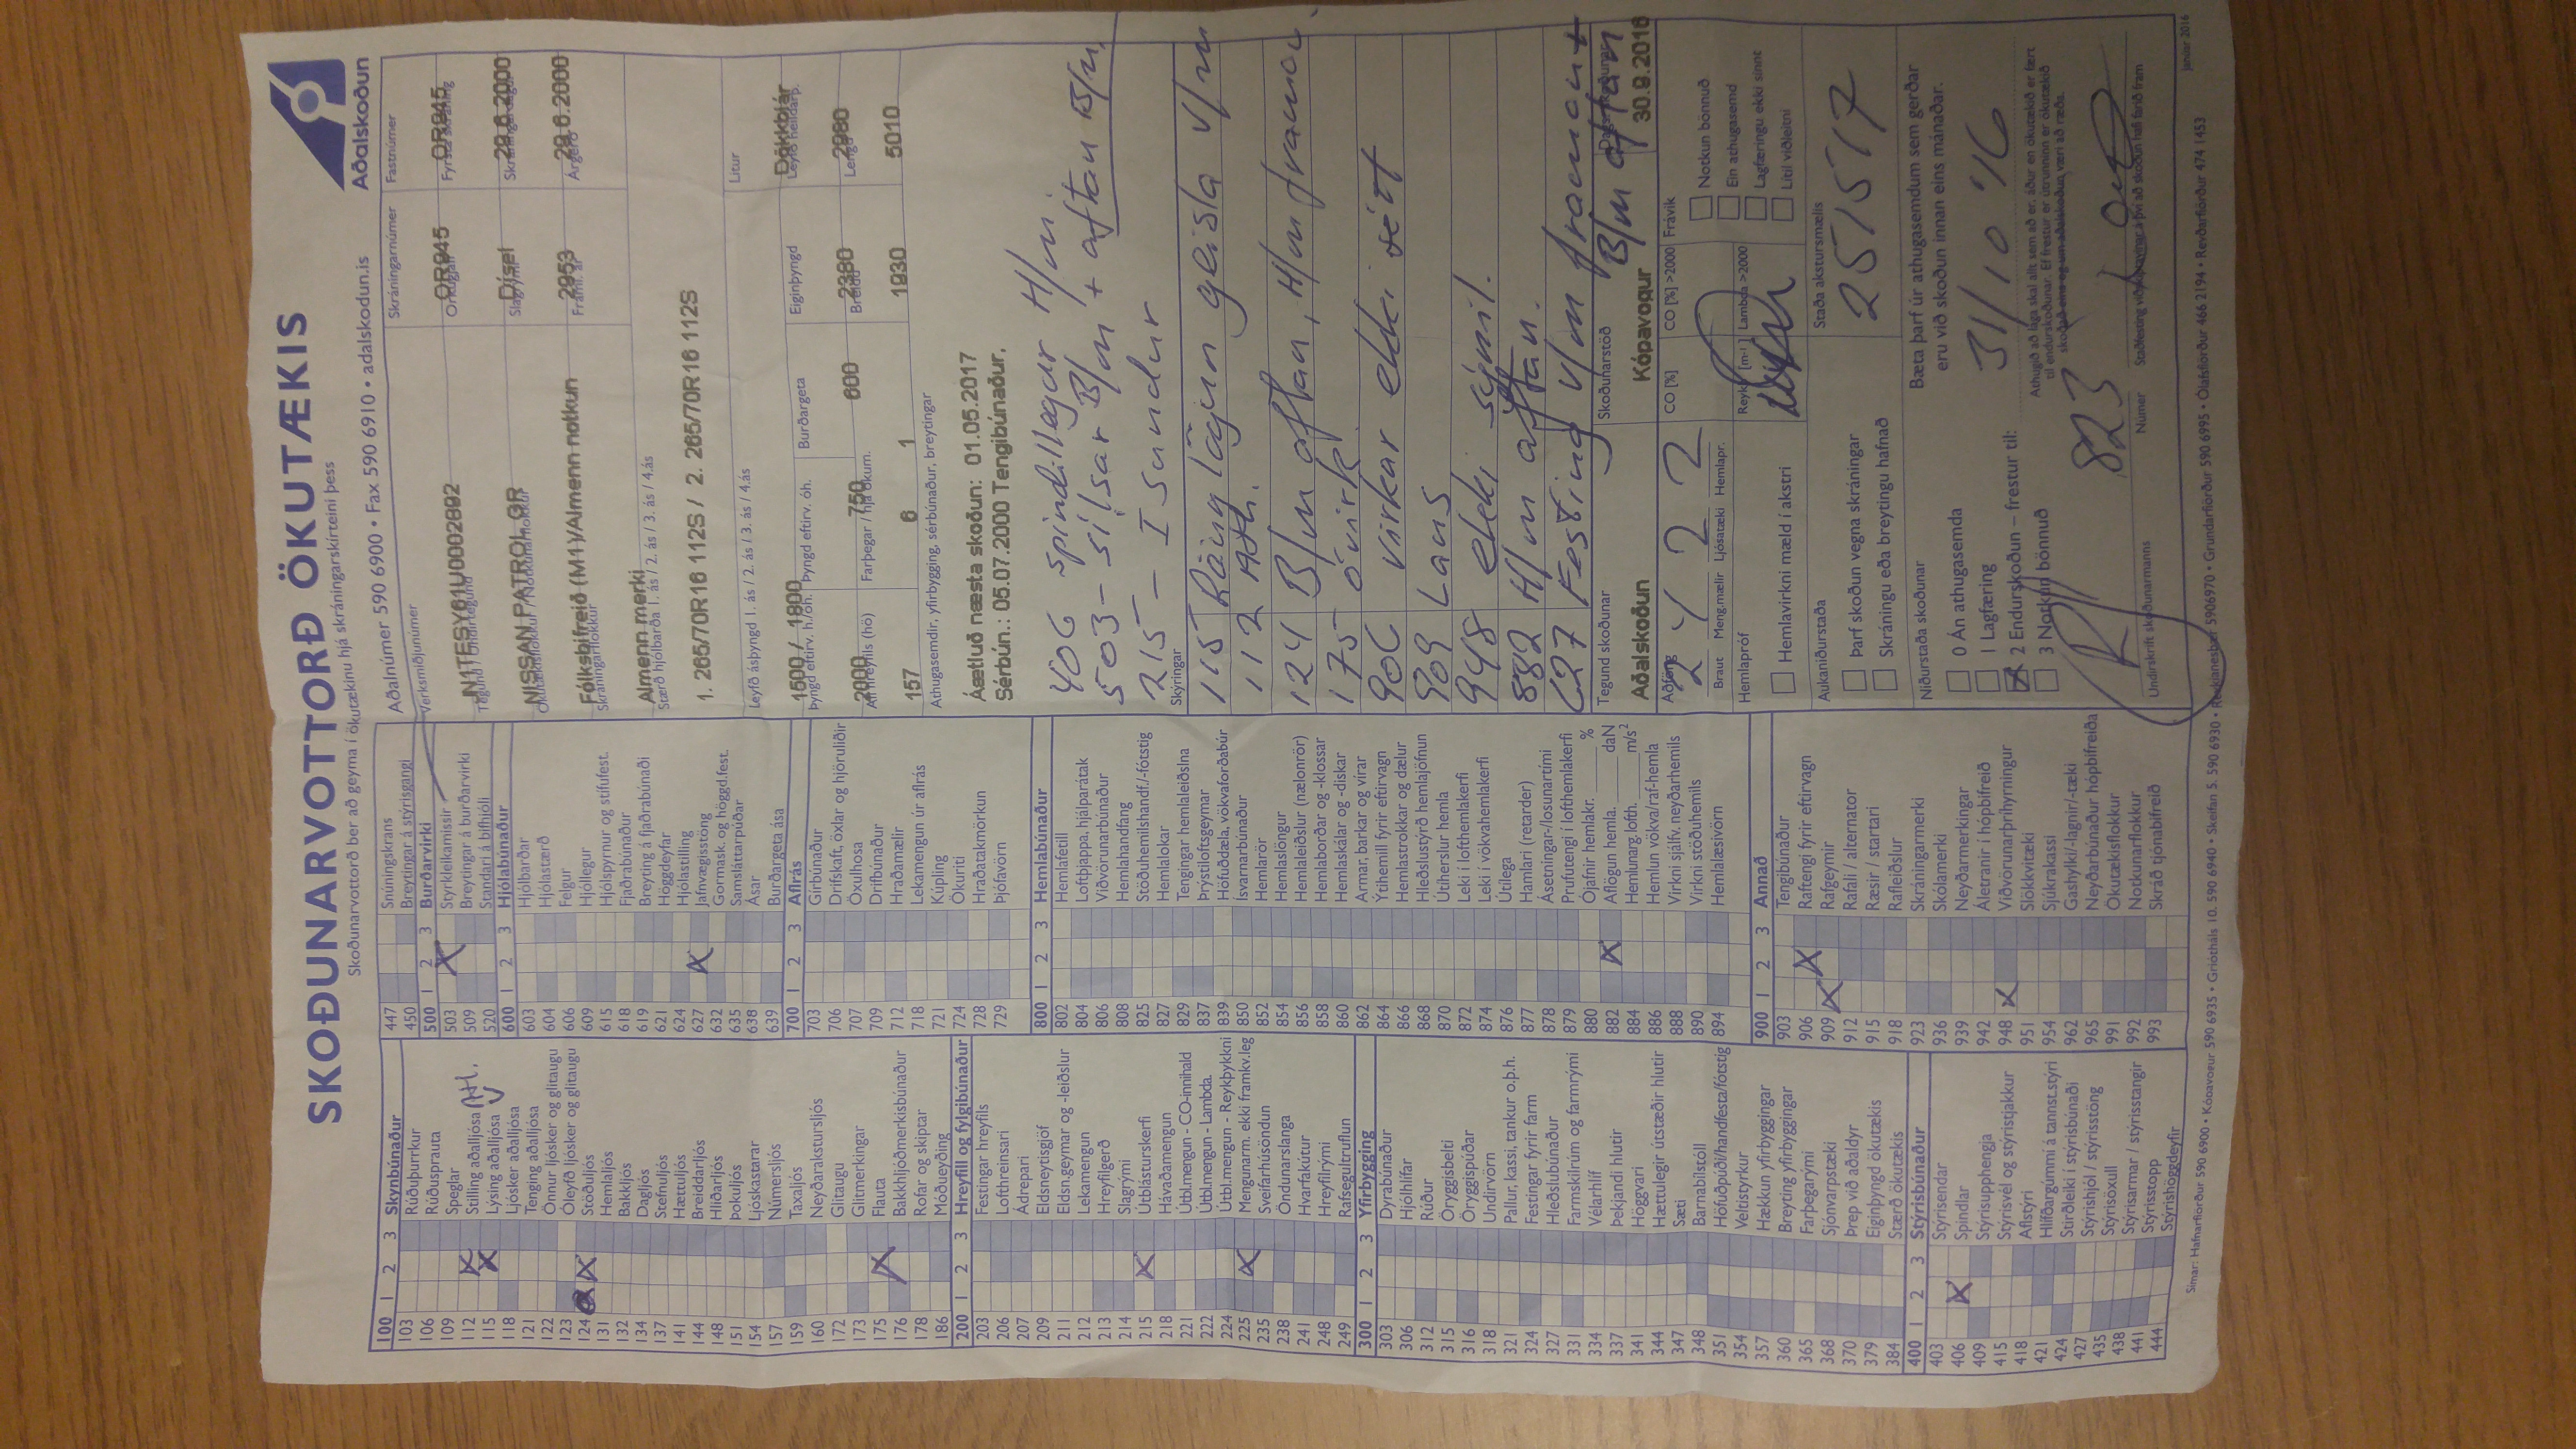 SKOÐUNARVOTTORÐ ÖKUTÆKIS
Skoðunarvottorð ber að geyma í ökutækinu hjá skráningarskírteini þess
Aðalskoðun
Aðalnúmer 590 6900 • Fax 590 6910 • adalskodun.is
100 1 2 3 Skynbúnaður
103 Rúðuþurrkur
106 Rúðusprauta
109 Speglar
112 Stilling aðalljósa Ath.
115 Lýsing aðalljósa V
118 Ljósker aðalljósa
121 Tenging aðalljósa
122 Önnur ljósker og glitaugu
123 Óleyfð ljósker og glitaugu
124 Stöðuljós
131 Hemlaljós
132 Bakkljós
134 Dagljós
137 Stefnuljós
141 Hættuljós
144 Breiddarljós
148 Hliðarljós
151 Þokuljós
154 Ljóskastarar
157 Númersljós
159 Taxaljós
160 Neyðarakstursljós
172 Glitaugu
173 Glitmerkingar
175 Flauta
176 Bakkhljóðmerkisbúnaður
178 Rofar og skiptar
186 Móðueyðing
200 1 2 3 Hreyfill og fylgibúnaður
203 Festingar hreyfils
206 Lofthreinsari
207 Ádrepari
209 Eldsneytisgjöf
211 Eldsn.geymar og -leiðslur
212 Lekamengun
213 Hreyfilgerð
214 Slagrými
215 Útblásturskerfi
218 Hávaðamengun
221 Útbl.mengun - CO-innihald
222 Útbl.mengun - Lambda.
224 Útbl.mengun - Reykþykkni
225 Mengunarm. ekki framkv.leg
235 Sveifarhúsöndun
238 Öndunarslanga
241 Hvarfakútur
248 Hreyfilrými
249 Rafsegultruflun
300 1 2 3 Yfirbygging
303 Dyrabúnaður
306 Hjólhlífar
312 Rúður
315 Öryggisbelti
316 Öryggispúðar
318 Undirvörn
321 Pallur, kassi, tankur o.þ.h.
324 Festingar fyrir farm
327 Hleðslubúnaður
331 Farmskilrúm og farmrými
334 Vélarhlíf
337 Þekjandi hlutir
341 Höggvari
344 Hættulegir útstæðir hlutir
347 Sæti
348 Barnabílstóll
351 Höfuðpúði/handfesta/fótstig
354 Veltistyrkur
357 Hækkun yfirbyggingar
360 Breyting yfirbyggingar
365 Farþegarými
368 Sjónvarpstæki
370 Þrep við aðaldyr
379 Eiginþyngd ökutækis
384 Stærð ökutækis
400 1 2 3 Stýrisbúnaður
403 Stýrisendar
406 Spindlar
409 Stýrisupphengja
415 Stýrisvél og stýristjakkur
418 Aflstýri
421 Hlífðargúmmí á tannst.stýri
424 Stirðleiki í stýrisbúnaði
427 Stýrishjól / stýrisstöng
435 Stýrisöxull
438 Stýrisarmar / stýrisstangir
441 Stýrisstopp
444 Stýrishöggdeyfir
447 Snúningskrans
450 Breytingar á stýrisgangi
500 1 2 3 Burðarvirki
503 Styrkleikamissir
509 Breytingar á burðarvirki
520 Standari á bifhjóli
600 1 2 3 Hjólabúnaður
603 Hjólbarðar
604 Hjólastærð
606 Felgur
609 Hjóllegur
615 Hjólspyrnur og stífufest.
618 Fjaðrabúnaður
619 Breyting á fjaðrabúnaði
621 Höggdeyfar
624 Hjólastilling
627 Jafnvægisstöng
632 Gormask. og höggd.fest.
635 Samsláttarpúðar
638 Ásar
639 Burðargeta ása
700 1 2 3 Aflrás
703 Gírbúnaður
706 Drifskaft, öxlar og hjöruliðir
707 Öxulhosa
709 Drifbúnaður
712 Hraðamælir
718 Lekamengun úr aflrás
721 Kúpling
724 Ökuriti
728 Hraðatakmörkun
729 Þjófavörn
800 1 2 3 Hemlabúnaður
802 Hemlafetill
804 Loftþjappa, hjálparátak
806 Viðvörunarbúnaður
808 Hemlahandfang
825 Stöðuhemilshandf./-fótstig
827 Hemlalokar
829 Tengingar hemlaleiðslna
837 Þrýstiloftsgeymar
839 Höfuðdæla, vökvaforðabúr
850 Ísvarnarbúnaður
852 Hemlarör
854 Hemlaslöngur
856 Hemlaleiðslur (nælonrör)
858 Hemlaborðar og -klossar
860 Hemlaskálar og -diskar
862 Armar, barkar og vírar
864 Ýtihemill fyrir eftirvagn
866 Hemlastrokkar og dælur
868 Hleðslustýrð hemlajöfnun
870 Útíherslur hemla
872 Leki í lofthemlakerfi
874 Leki í vökvahemlakerfi
876 Útilega
877 Hamlari (retarder)
878 Ásetningar-/losunartími
879 Prufutengi í lofthemlakerfi
880 Ójafnir hemlakr. %
882 Aflögun hemla. daN
884 Hemlunarg.lofth. m/s²
886 Hemlun vökva/raf-hemla
888 Virkni sjálfv. neyðarhemils
890 Virkni stöðuhemils
894 Hemlalæsivörn
900 1 2 3 Annað
903 Tengibúnaður
906 Raftengi fyrir eftirvagn
909 Rafgeymir
912 Rafali / alternator
915 Ræsir / startari
918 Rafleiðslur
923 Skráningarmerki
936 Skólamerki
939 Neyðarmerkingar
942 Áletranir í hópbifreið
948 Viðvörunarþríhyrningur
951 Slökkvitæki
954 Sjúkrakassi
962 Gashylki/-lagnir/-tæki
965 Neyðarbúnaður hópbifreiða
991 Ökutækisflokkur
992 Notkunarflokkur
993 Skráð tjónabifreið
Verksmiðjunúmer Skráningarnúmer Fastnúmer
JN1TESY61U0002892 OR945 OR945
Tegund / Undirtegund Orkugjafi Fyrsta skráning
NISSAN PATROL GR Dísel 29.6.2000
Ökutækisflokkur / Notkunarflokkur Slagrými Skráningardagur
Fólksbifreið (M1)/Almenn notkun 2953 29.6.2000
Skráningarflokkur Framl. ár Árgerð
Almenn merki
Stærð hjólbarða 1. ás / 2. ás / 3. ás / 4.ás
1. 265/70R16 112S / 2. 265/70R16 112S
Leyfð ásþyngd 1. ás / 2. ás / 3. ás / 4.ás Litur
1500 / 1800 Dökkblár
Þyngd eftirv. h./óh. Þyngd eftirv. óh. Burðargeta Eiginþyngd Leyfð heildarþ.
2000 750 600 2380 2980
Afl hreyfils (hö) Farþegar / hjá ökum. Breidd Lengd
157 6 1 1930 5010
Athugasemdir, yfirbygging, sérbúnaður, breytingar
Áætluð næsta skoðun: 01.05.2017
Sérbún.: 05.07.2000 Tengibúnaður.
406 spindillegur H/m.
503 – sílsar B/m + aftan B/m.
215 – Í sundur
Skýringar
115 Röng lögun geisla V/m
112 Ath.
124 B/m aftan, H/m framan
175 óvirk
906 virkar ekki rétt
909 Laus
948 ekki sýnil.
882 H/m aftan.
627 Festing V/m framan +
B/m aftan
Tegund skoðunar Skoðunarstöð Dags. skoðunar
Aðalskoðun Kópavogur 30.9.2016
Aðföng CO [%] CO [%] >2000 Frávik
2 4 2 2
Braut Meng.mælir Ljósatæki Hemlapr. Reykþ. [m-¹] Lambda >2000
Notkun bönnuð
Ein athugasemd
Lagfæringu ekki sinnt
Lítil viðleitni
Hemlapróf
Hemlavirkni mæld í akstri
Staða akstursmælis
251517
Aukaniðurstaða
Þarf skoðun vegna skráningar
Skráningu eða breytingu hafnað
Niðurstaða skoðunar
0 Án athugasemda
1 Lagfæring
2 Endurskoðun – frestur til:
3 Notkun bönnuð
Bæta þarf úr athugasemdum sem gerðar
eru við skoðun innan eins mánaðar.
31/10 '16
Athugið að laga skal allt sem að er, áður en ökutækið er fært
til endurskoðunar. Ef frestur er útrunninn er ökutækið
skoðað eins og um aðalskoðun væri að ræða.
823
Undirskrift skoðunarmanns Númer Staðfesting viðskiptavinar á því að skoðun hafi farið fram
Símar: Hafnarfjörður 590 6900 • Kópavogur 590 6935 • Grjótháls 10. 590 6940 • Skeifan 5. 590 6930 • Reykjanesbær 5906970 • Grundarfjörður 590 6995 • Ólafsfjörður 466 2194 • Reyðarfjörður 474 1453
Janúar 2016